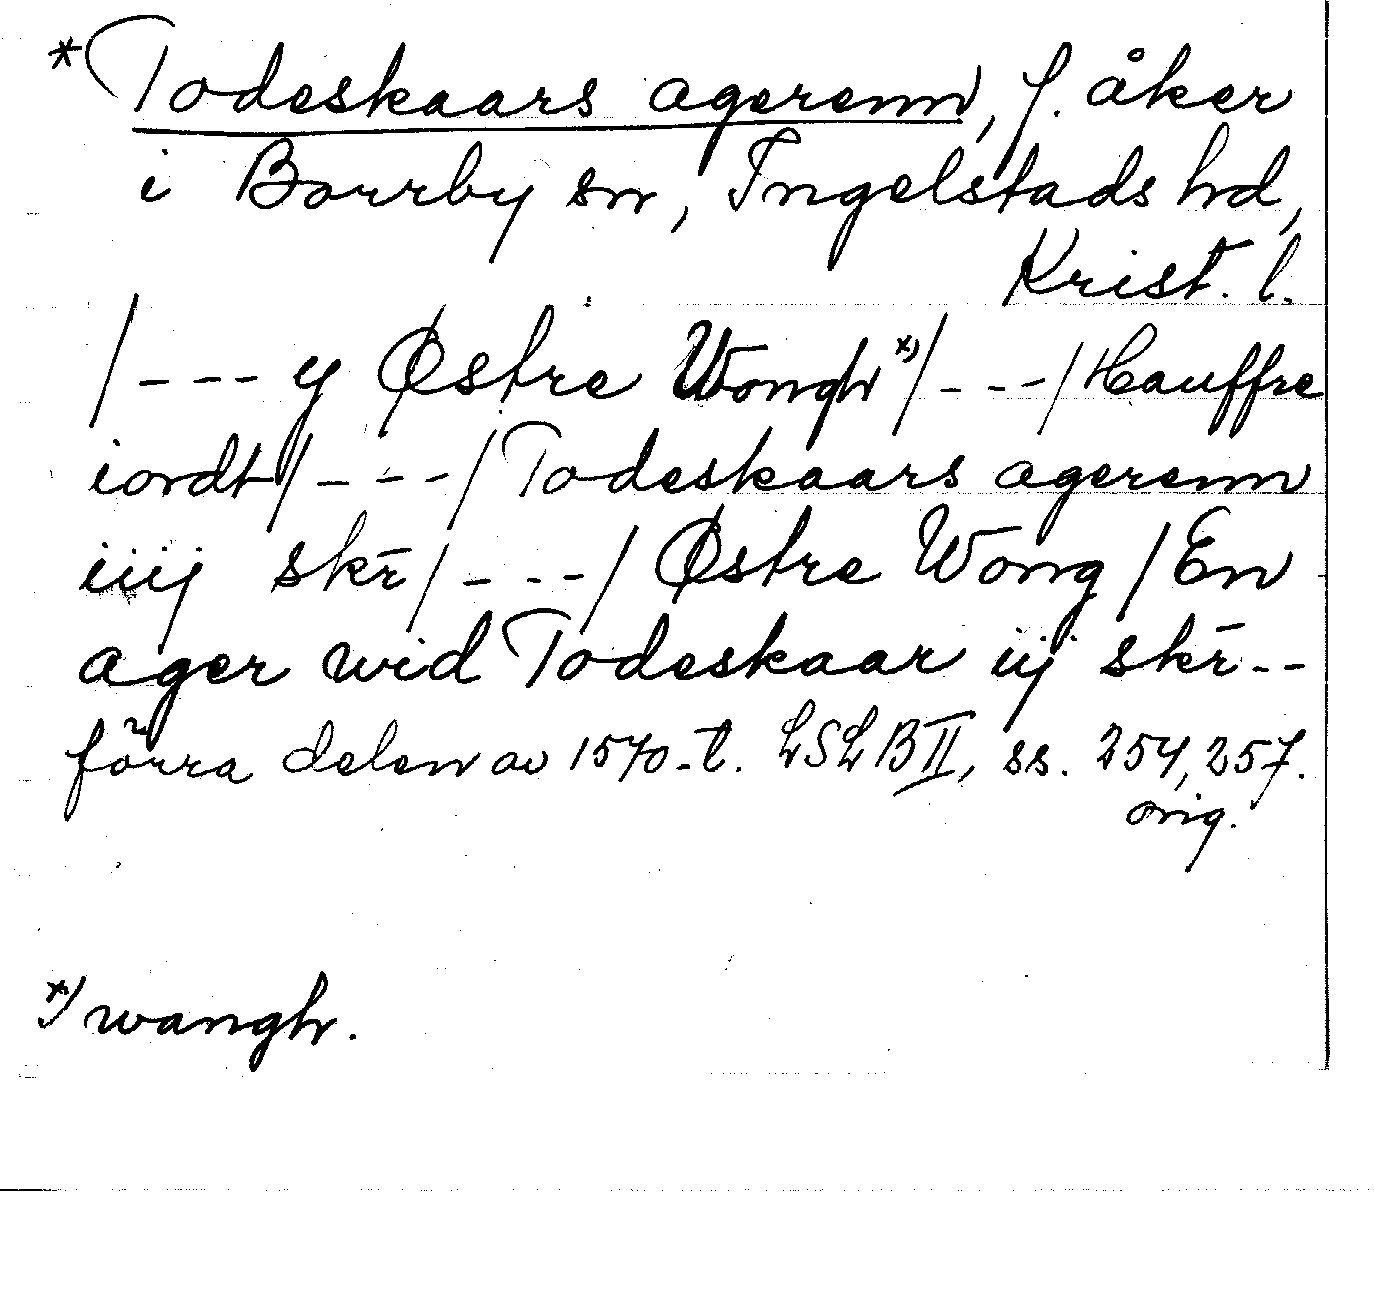 *Todeskaars agerenn, f. åker
i Borrby sn, Ingelstads hd,
Krist. l.
/--- y Østre Wongh *)/---/ Hauffre
iordt/---/ Todeskaars agerenn
iiij skr̄/---/ Østre Wong / En
ager wid Todeskaar iij skr̄--
förra delen av 1570-t. LSLB II, ss. 254, 257.
orig.
*) wangh.